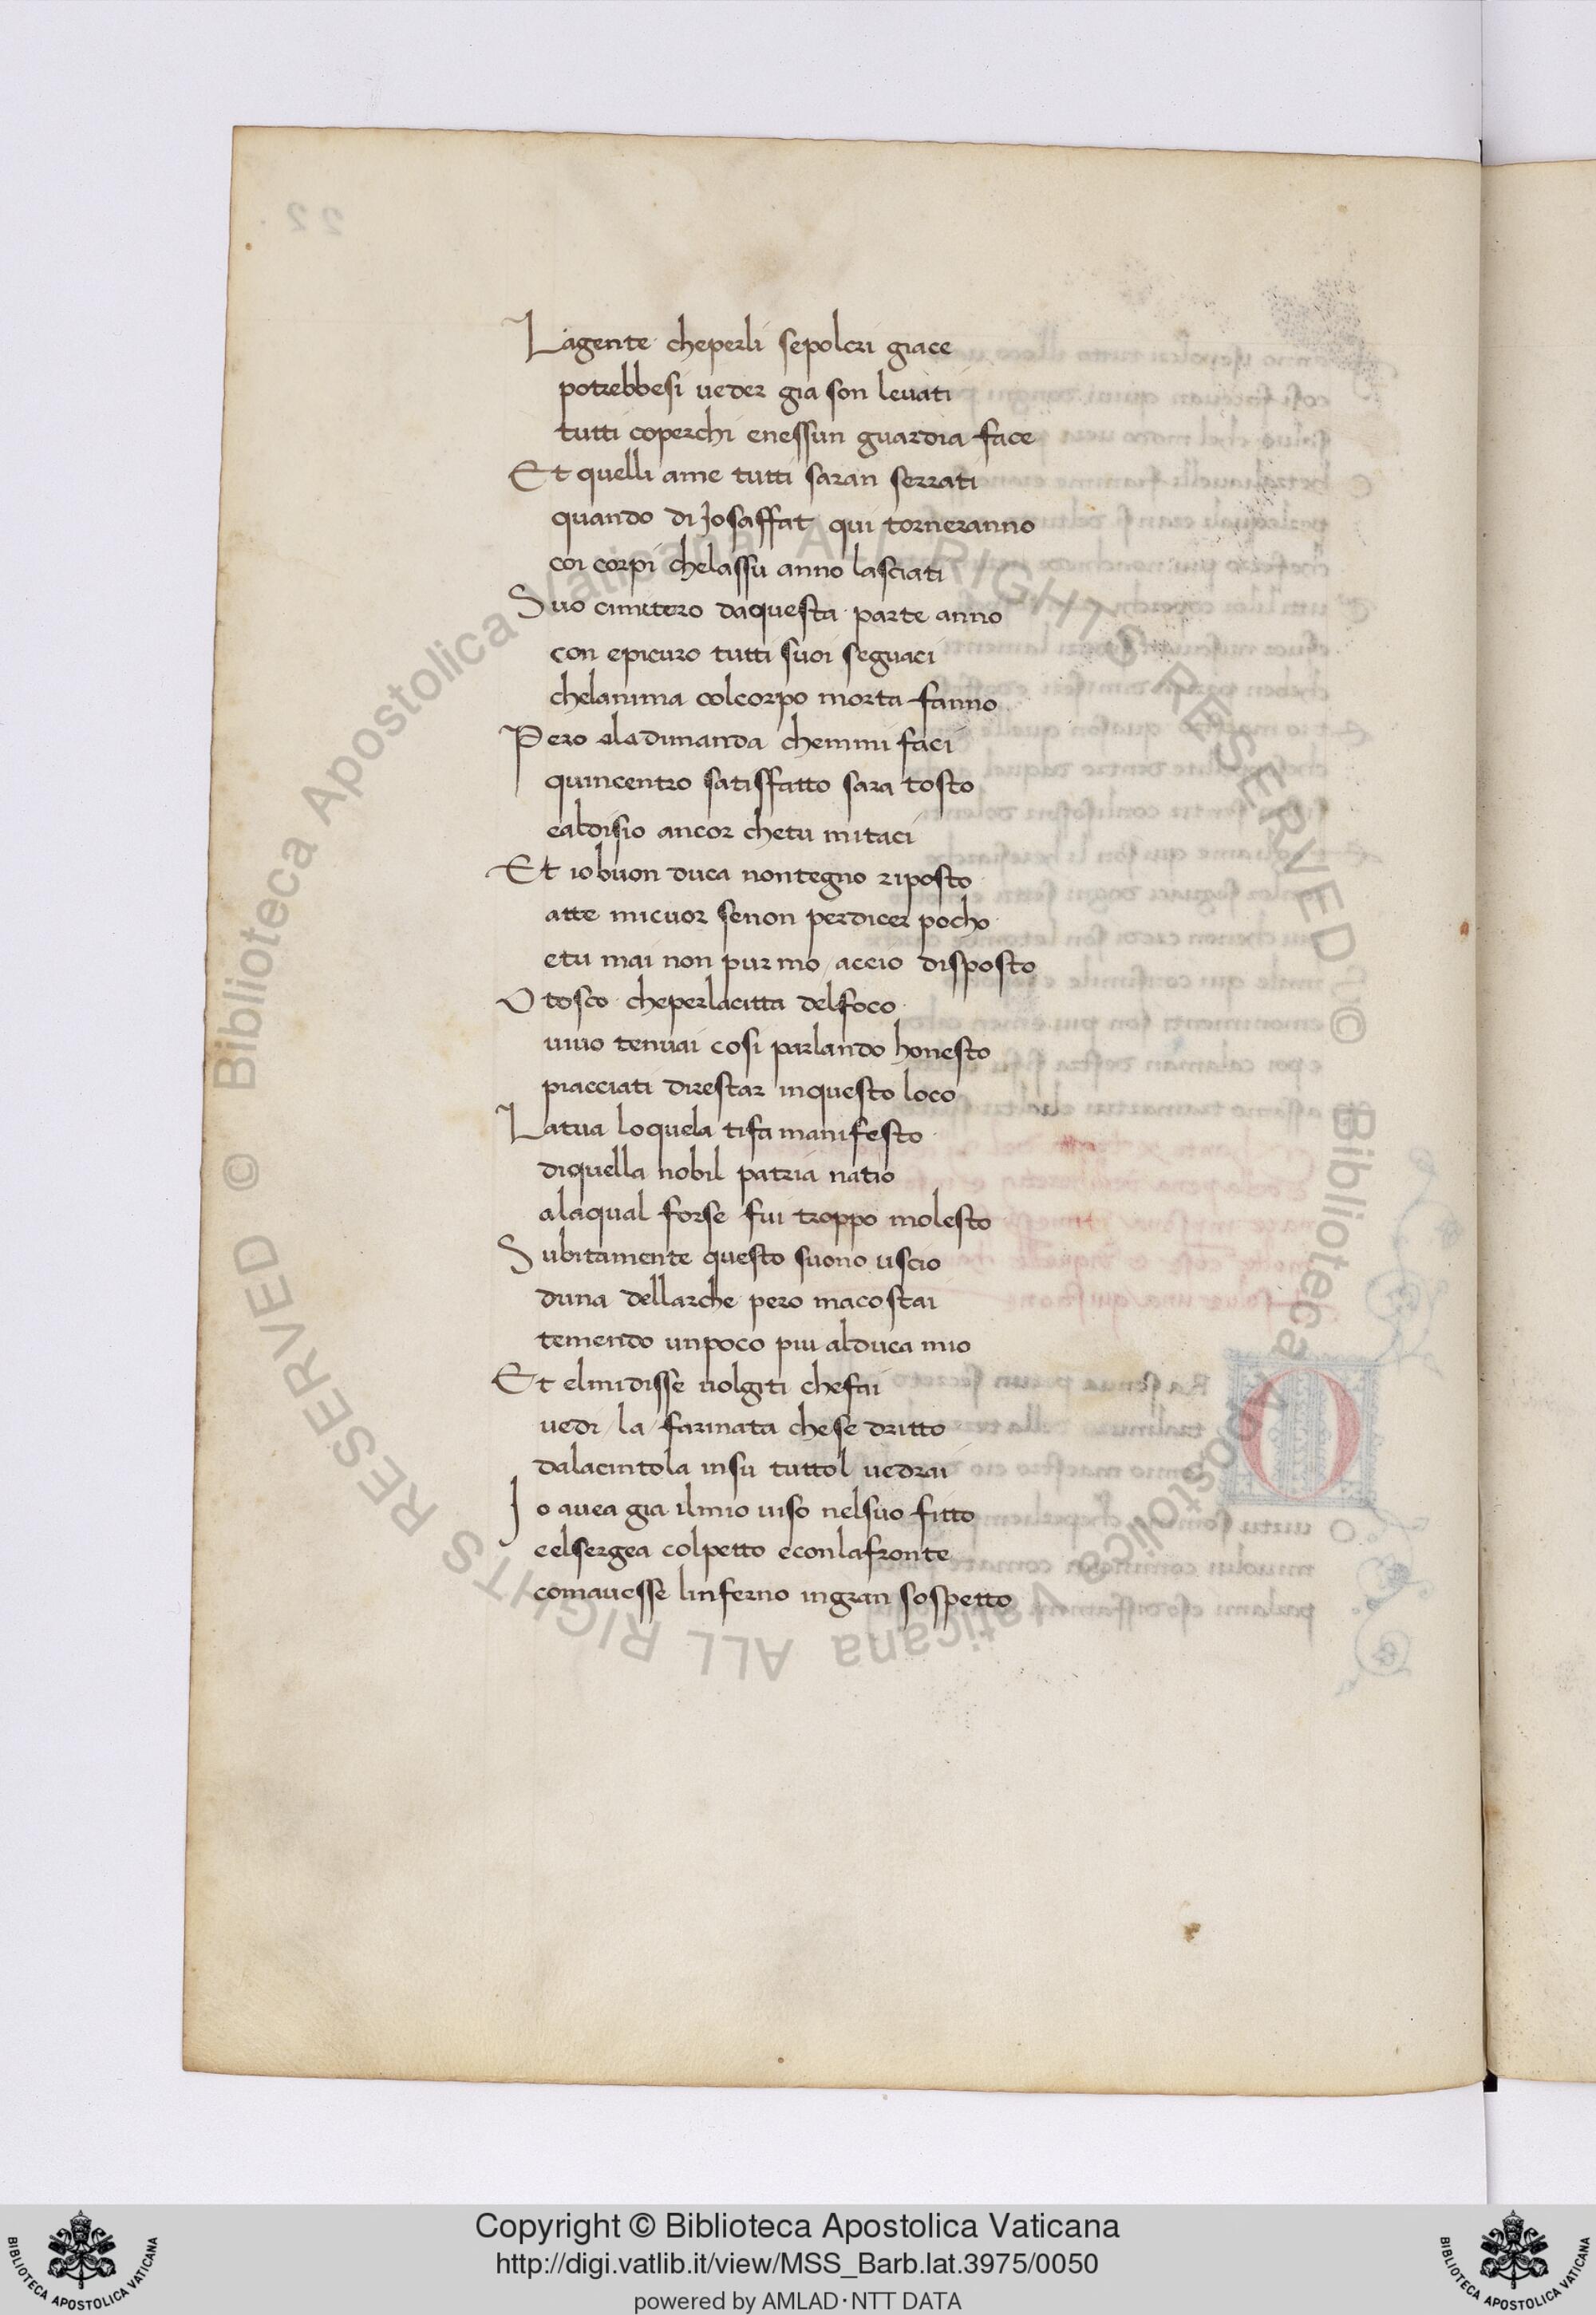 Lagente cheperli sepolcri giace
potrebbesi ueder gia son leuati
tutti coperchi enessun guardia face
Et quelli ame tutti saran serrati
quando di Josaffat qui torneranno
coi corpi chelassu anno lasciati
Suo cimitero daquesta parte anno
con epicuro tutti suoi seguaci
chelanima colcorpo morta fanno
Pero aladimanda chemmi faci
quincentro satisffatto sara tosto
ealdisio ancor chetu mitaci
Et io buon duca nontegno riposto
atte micuor senon perdicer pocho
etu mai non pur mo accio disposto
O tosco cheperlacitta delfoco
uiuo tenuai cosi parlando honesto
piacciati direstar inquesto loco
Latua loquela tifa manifesto
diquella nobil patria natio
alaqual forse fui troppo molesto
Subitamente questo suono uscio
duna dellarche pero macostai
temendo unpoco piu alduca mio
Et elmidisse uolgiti chefai
uedi la farinata chese dritto
dalacintola insu tuttol uedrai
Io auea gia ilmio uiso nelsuo fitto
eelsergea colpetto econlafronte
comauesse linferno ingran sospetto
22
© Biblioteca Apostolica Vaticana ALL RIGHTS RESERVED
© Biblioteca Apostolica Vaticana ALL RIGHTS RESERVED
Copyright © Biblioteca Apostolica Vaticana
http://digi.vatlib.it/view/MSS_Barb.lat.3975/0050
powered by AMLAD·NTT DATA
BIBLIOTECA APOSTOLICA VATICANA
BIBLIOTECA APOSTOLICA VATICANA